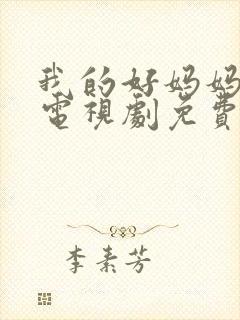 我的好妈妈
電視劇免費
李素芳